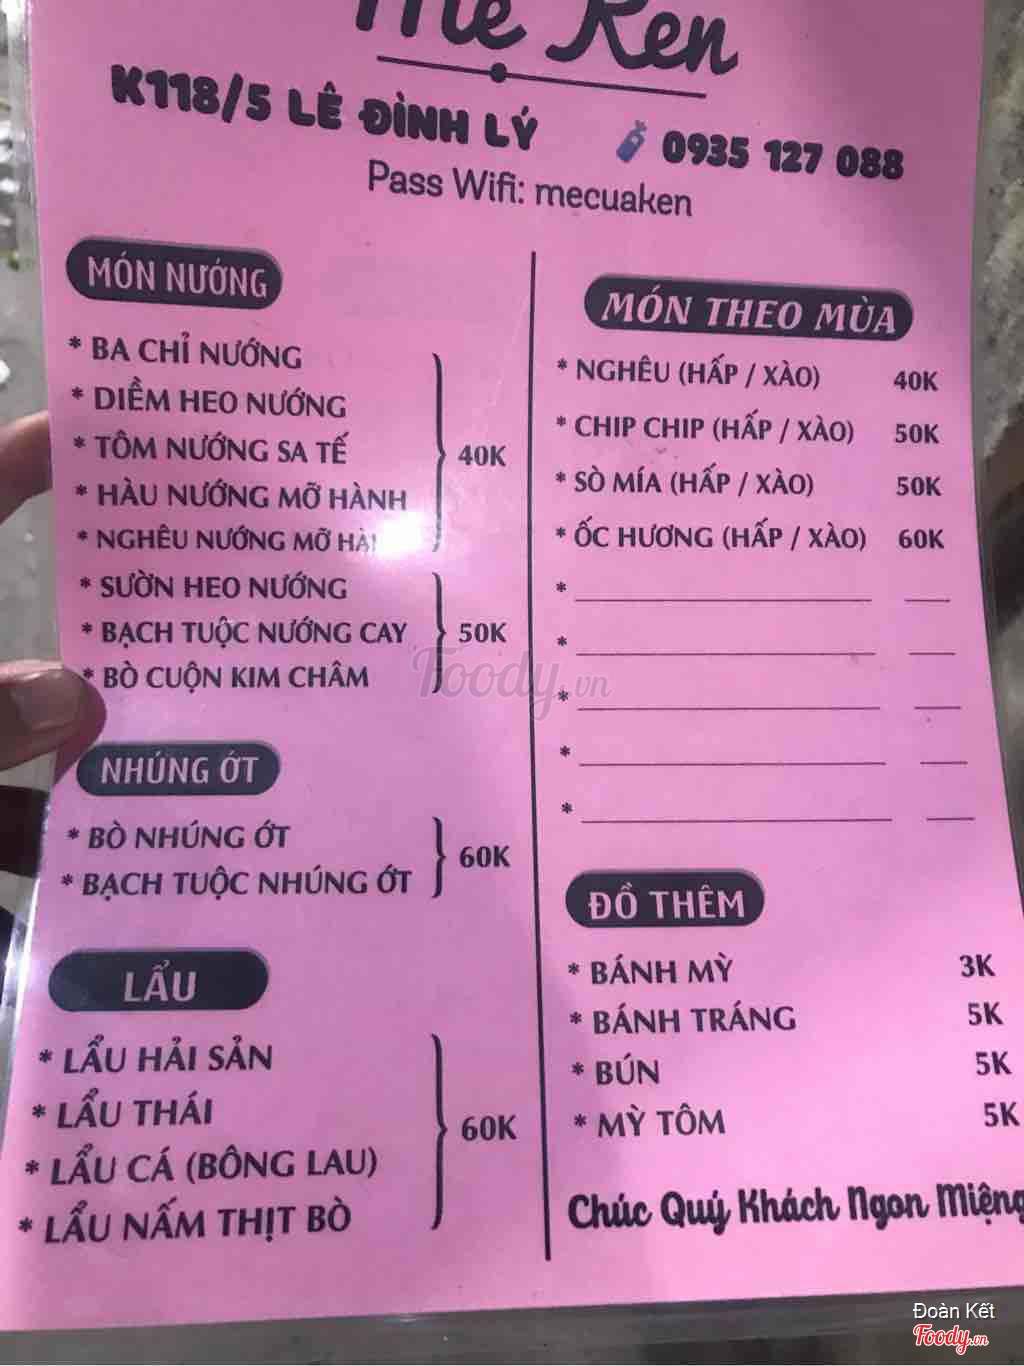 Mẹ Ken
K118/5 LÊ ĐÌNH LÝ 0935 127 088
Pass Wifi: mecuaken
MÓN NƯỚNG
* BA CHỈ NƯỚNG
* DIỀM HEO NƯỚNG
* TÔM NƯỚNG SA TẾ
* HÀU NƯỚNG MỠ HÀNH
* NGHÊU NƯỚNG MỠ
40K
* SƯỜN HEO NƯỚNG
* BẠCH TUỘC NƯỚNG CAY
* BÒ CUỘN KIM CHÂM
50K
NHÚNG ỚT
* BÒ NHÚNG ỚT
* BẠCH TUỘC NHÚNG ỚT
60K
LẨU
* LẨU HẢI SẢN
* LẨU THÁI
* LẨU CÁ (BÔNG LAU)
* LẨU NẤM THỊT BÒ
60K
MÓN THEO MÙA
* NGHÊU (HẤP / XÀO) 40K
* CHIP CHIP (HẤP / XÀO) 50K
* SÒ MÍA (HẤP / XÀO) 50K
* ỐC HƯƠNG (HẤP / XÀO) 60K
*
*
*
*
*
ĐỒ THÊM
* BÁNH MỲ 3K
* BÁNH TRÁNG 5K
* BÚN 5K
* MỲ TÔM 5K
Chúc Quý Khách Ngon Miệng
Foody.vn
Đoàn Kết
Foody.vn